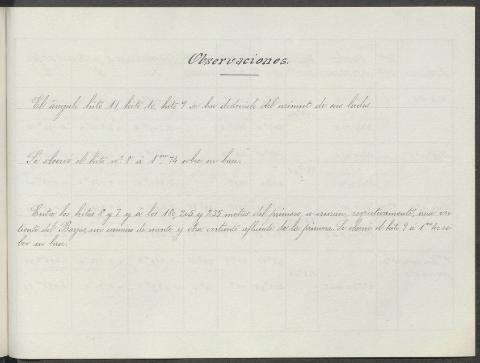 Observaciones.
El ángulo hito 11, hito 10, hito 9 se ha deducido del azimut de sus lados.
Se observó el hito nº 8 á 1m 74 sobre su base.
Entre los hitos 8 y 7 y á los 180, 205 y 235 metros del primero, se cruzan, respectivamente, una ver
tiente del Bazus, un camino de monte y otra vertiente afluente de la primera. Se observó el hito 9 á 1m so
bre su base.